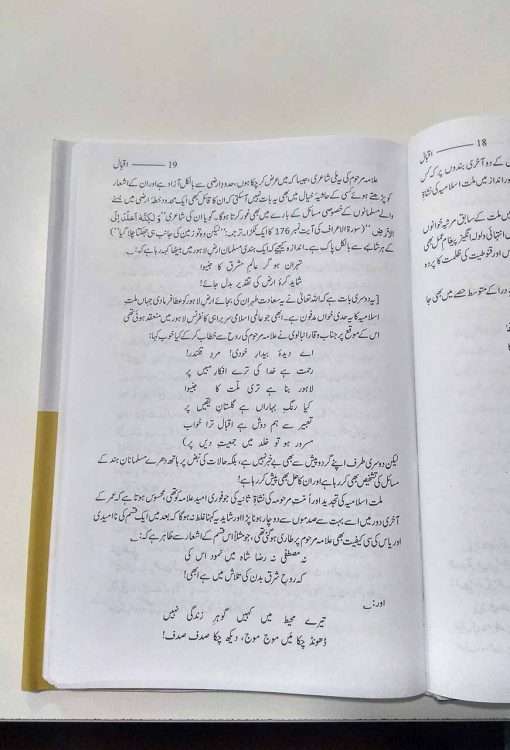 18 ——— اقبال
کے دو آخری بندوں پر کہ کس
اور انداز میں ملت اسلامیہ کی نشاۃِ
ملت کے سابق مرثیہ خوانوں
انتہائی ولولہ انگیز پیغامِ عمل بھی
اور قنوطیت کی ظلمت کا پردہ
درا کے متوسط حصے میں بھی جا
19 ——— اقبال
علامہ مرحوم کی یہ ملی شاعری، جیسا کہ میں عرض کر چکا ہوں، حدود ارضی سے بالکل آزاد ہے اور ان کے اشعار
کو پڑھتے ہوئے کسی کے حاشیۂ خیال میں بھی یہ بات نہیں آسکتی کہ ان کا قائل کبھی ایک محدود خطۂ ارضی میں بسنے
والے مسلمانوں کے خصوصی مسائل کے بارے میں بھی غور کرتا ہوگا۔ گویا ان کی شاعری ’’وَلٰکِنَّہٗ اَخْلَدَ اِلَی
الْاَرْضِ‘‘ (سورۃ الاعراف کی آیت نمبر 176 کا ایک ٹکڑا، ترجمہ: ’’لیکن وہ تو زمین کی جانب ہی جھکتا چلا گیا‘‘)
کے ہر شائبے سے بالکل پاک ہے۔ اندازہ تو کیجئے کہ ایک ہندی مسلمان ارضِ لاہور میں بیٹھا کہہ رہا ہے کہ:
تہران ہو گر عالمِ مشرق کا جنیوا
شاید کرۂ ارض کی تقدیر بدل جائے!
[یہ دوسری بات ہے کہ اللہ تعالیٰ نے یہ سعادت طہران کی بجائے ارضِ لاہور کو عطا فرما دی جہاں ملتِ
اسلامیہ کا یہ حدی خواں مدفون ہے۔ ابھی جو عالمی اسلامی سربراہی کانفرنس لاہور میں منعقد ہوئی تھی
اس کے موقع پر جناب وقار انبالوی نے علامہ مرحوم کی روح سے خطاب کر کے کیا خوب کہا:
اے دیدۂ بیدار خودی! مردِ قلندر!
رحمت ہے خدا کی ترے افکارِ مبیں پر
لاہور بنا ہے تری ملّت کا جنیوا
کیا رنگِ بہاراں ہے گلستانِ یقیں پر
تعبیر سے ہم دوش ہے اقبال ترا خواب
مسرور ہو تو خلد میں جمعیتِ دیں پر)
لیکن دوسری طرف اپنے گرد و پیش سے بھی بے خبر نہیں ہے، بلکہ حالات کی نبض پر ہاتھ دھرے مسلمانانِ ہند کے
مسائل کی تشخیص بھی کر رہا ہے اور ان کا حل بھی پیش کر رہا ہے!
ملت اسلامیہ کی تجدید اور اُمتِ مرحومہ کی نشاۃِ ثانیہ کی جو فوری امید علامہ کو تھی، محسوس ہوتا ہے کہ عمر کے
آخری دور میں اسے بہت سے صدموں سے دوچار ہونا پڑا اور شاید یہ کہنا غلط نہ ہوگا کہ بعد میں ایک قسم کی نا امیدی
اور یاس کی سی کیفیت بھی علامہ مرحوم پر طاری ہوگئی تھی، جو مثلاً اس قسم کے اشعار سے ظاہر ہے کہ:
نہ مصطفٰی نہ رضا شاہ میں نمود اس کی
کہ روحِ شرق بدن کی تلاش میں ہے ابھی!
اور:
تیرے محیط میں کہیں گوہرِ زندگی نہیں
ڈھونڈ چکا میں موج موج، دیکھ چکا صدف صدف!